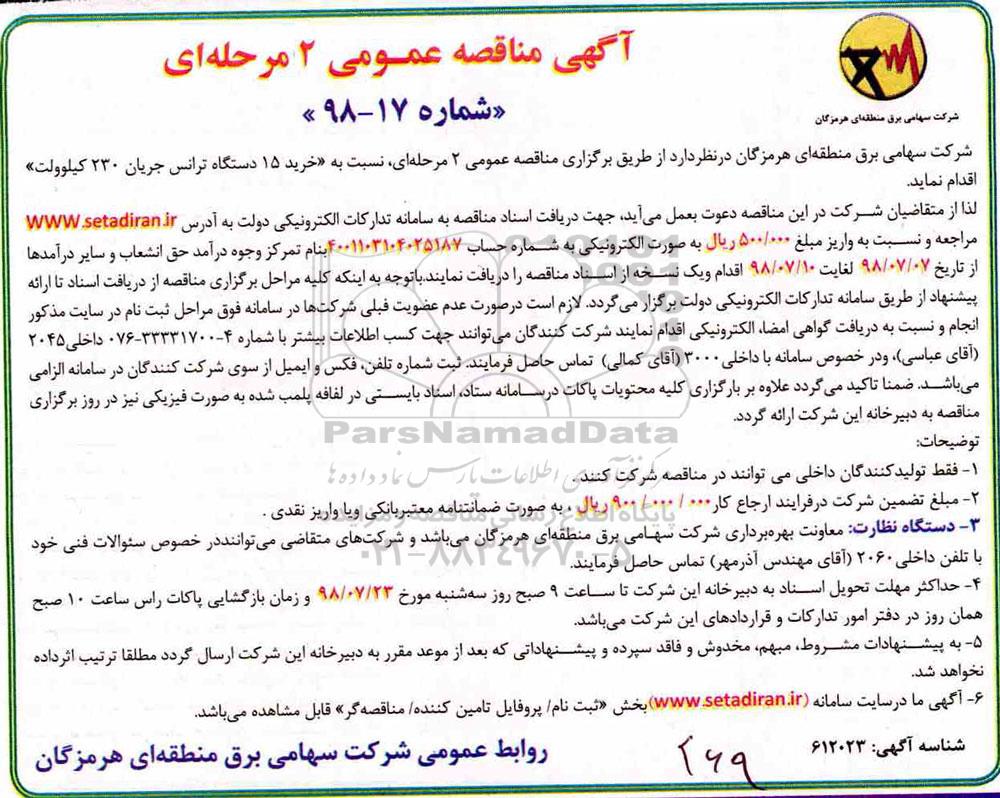 آگهی مناقصه عمـومی ۲ مرحله‌ای
«شماره ۱۷-۹۸»
شرکت سهامی برق منطقه‌ای هرمزگان
شرکت سهامی برق منطقه‌ای هرمزگان درنظردارد از طریق برگزاری مناقصه عمومی ۲ مرحله‌ای، نسبت به «خرید ۱۵ دستگاه ترانس جریان ۲۳۰ کیلوولت»
اقدام نماید.
لذا از متقاضیان شــرکت در این مناقصه دعوت بعمل می‌آید، جهت دریافت اسناد مناقصه به سامانه تدارکات الکترونیکی دولت به آدرس WWW.setadiran.ir
مراجعه و نسـبت به واریز مبلغ ۵۰۰/۰۰۰ ریال به صورت الکترونیکی به شـماره حساب ۴۰۰۱۱۰۳۱۰۴۰۲۵۱۸۷بنام تمرکز وجوه درآمد حق انشعاب و سایر درآمدها
از تاریخ ۹۸/۰۷/۰۷ لغایت ۹۸/۰۷/۱۰ اقدام ویک نسـخه از اسـناد مناقصه را دریافت نمایند.باتوجه به اینکه کلیه مراحل برگزاری مناقصه از دریافت اسناد تا ارائه
پیشنهاد از طریق سامانه تدارکات الکترونیکی دولت برگزار می‌گردد. لازم است درصورت عدم عضویت قبلی شرکت‌ها در سامانه فوق مراحل ثبت نام در سایت مذکور
انجام و نسبت به دریافت گواهی امضاء الکترونیکی اقدام نمایند شرکت کنندگان می‌توانند جهت کسب اطلاعات بیشتر با شماره ۴-۳۳۳۳۱۷۰۰-۰۷۶ داخلی۲۰۴۵
(آقای عباسی)، ودر خصوص سامانه با داخلی ۳۰۰۰ (آقای کمالی) تماس حاصل فرمایند. ثبت شماره تلفن، فکس و ایمیل از سوی شرکت کنندگان در سامانه الزامی
می‌باشـد. ضمنا تاکید می‌گردد علاوه بر بارگزاری کلیه محتویات پاکات درسـامانه ستاد، اسناد بایسـتی در لفافه پلمب شده به صورت فیزیکی نیز در روز برگزاری
مناقصه به دبیرخانه این شرکت ارائه گردد.
ParsNamadData
توضیحات:
مرکز فن‌آوری اطلاعات پارس نماد داده‌ها
۱- فقط تولیدکنندگان داخلی می توانند در مناقصه شرکت کنند.
۲- مبلغ تضمین شرکت درفرایند ارجاع کار ۹۰۰/۰۰۰/۰۰۰ ریال ، به صورت ضمانتنامه معتبربانکی ویا واریز نقدی .
پایگاه اطلاع رسانی مناقصه و مزایده
۳- دستگاه نظارت: معاونت بهره‌برداری شرکت سهـامی برق منطقه‌ای هرمزگان می‌باشد و شرکت‌های متقاضی می‌تواننددر خصوص سئوالات فنی خود
۰۲۱-۸۸۳۴۹۶۷۰-۵
با تلفن داخلی۲۰۶۰ (آقای مهندس آذرمهر) تماس حاصل فرمایند.
۴- حداکثر مهلت تحویل اسـناد به دبیرخانه این شرکت تا ساعت ۹ صبح روز سه‌شنبه مورخ ۹۸/۰۷/۲۳ و زمان بازگشایی پاکات راس ساعت ۱۰ صبح
همان روز در دفتر امور تدارکات و قراردادهای این شرکت می‌باشد.
۵- به پیشـنهادات مشـروط، مبهم، مخدوش و فاقد سپرده و پیشـنهاداتی که بعد از موعد مقرر به دبیرخانه این شرکت ارسال گردد مطلقا ترتیب اثرداده
نخواهد شد.
۶- آگهی ما درسایت سامانه (www.setadiran.ir)بخش «ثبت نام/ پروفایل تامین کننده/ مناقصه‌گر» قابل مشاهده می‌باشد.
شناسه آگهی: ۶۱۲۰۲۳
۲۶۹
روابط عمومی شرکت سهامی برق منطقه‌ای هرمزگان